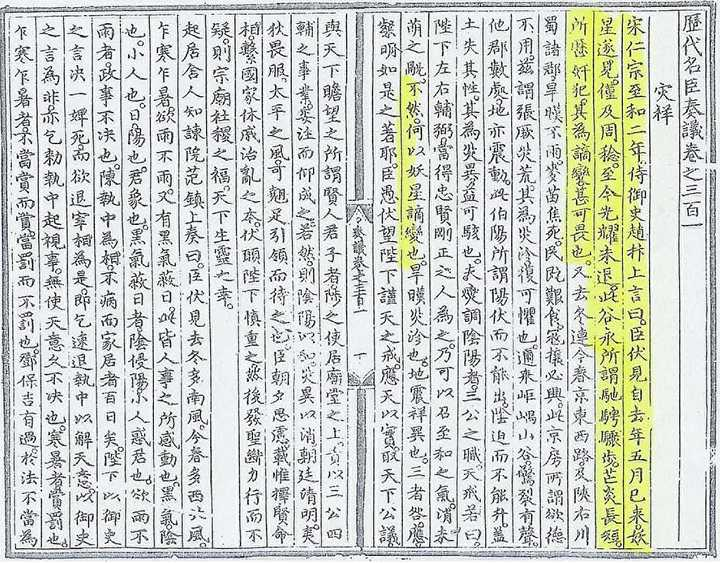 歷代名臣奏議卷之三百一
灾祥
宋仁宗至和二年侍御史趙抃上言曰。臣伏見自去年五月已來妖
星遂見。僅及周稔。至今光耀未退。此谷永所謂馳騁驟步。芒炎長短。
所歷奸犯。其為謫變甚可畏也。又去冬連今春。京東西路及陜右川
蜀諸郡旱暵不雨。麥苗焦死。民既艱食。寇攘必興。此京房所謂欲德
不用。茲謂張厥災荒。其為災沴復可懼也。邇來岠嵎山谷驚裂有聲。
他郡數處。地亦震動。此伯陽所謂陽伏而不能出。陰迫而不能升。蓋
土失其性。其為災異益可駭也。夫燮調陰陽者。三公之職。天戒若曰
陛下左右輔弼當得忠賢剛正之人為之。乃可以召至和之氣。消未
萌之眚。不然。何以妖星謫變也。旱暵災沴也。地震祥異也。三者咎應。
繁明如是之著耶。臣愚伏望陛下謹天之戒。應天以實。取天下公議
奏議卷之三百一
一
與天下瞻望之所謂賢人君子者陟之。使居廟堂之上。責以三公四
輔之事業。委注而仰成之。若然。則陰陽以和。災異以消。朝廷清明。夷
狄畏服。太平之風可翹足引領而待之也。臣朝夕思慮。載惟擢賢命
相繫國家休戚治亂之本。伏願陛下慎重之。然後發聖斷力行而不
疑。則宗廟社稷之福。天下生靈之幸。
起居舍人知諫院范鎮上奏曰。臣伏見去冬多南風。今春多西北風。
乍寒乍暑。欲雨不雨。又有黑氣蔽日。此皆人事之所感動也。黑氣陰
也。小人也。日陽也。君象也。黑氣蔽日者。陰侵陽。小人惑君也。欲雨不
雨者。政事不决也。陳執中為相。不病而家居者百日矣。陛下以御史
之言决一婢死。而欲退宰相為是。即乞速退執中。以解天意。以御史
之言為非。亦乞勑執中起視事。無使天意久不决也。寒暑者。賞罰也。
乍寒乍暑者。不當賞而賞。當罰而不罰也。鄧保吉有過。於法不當為